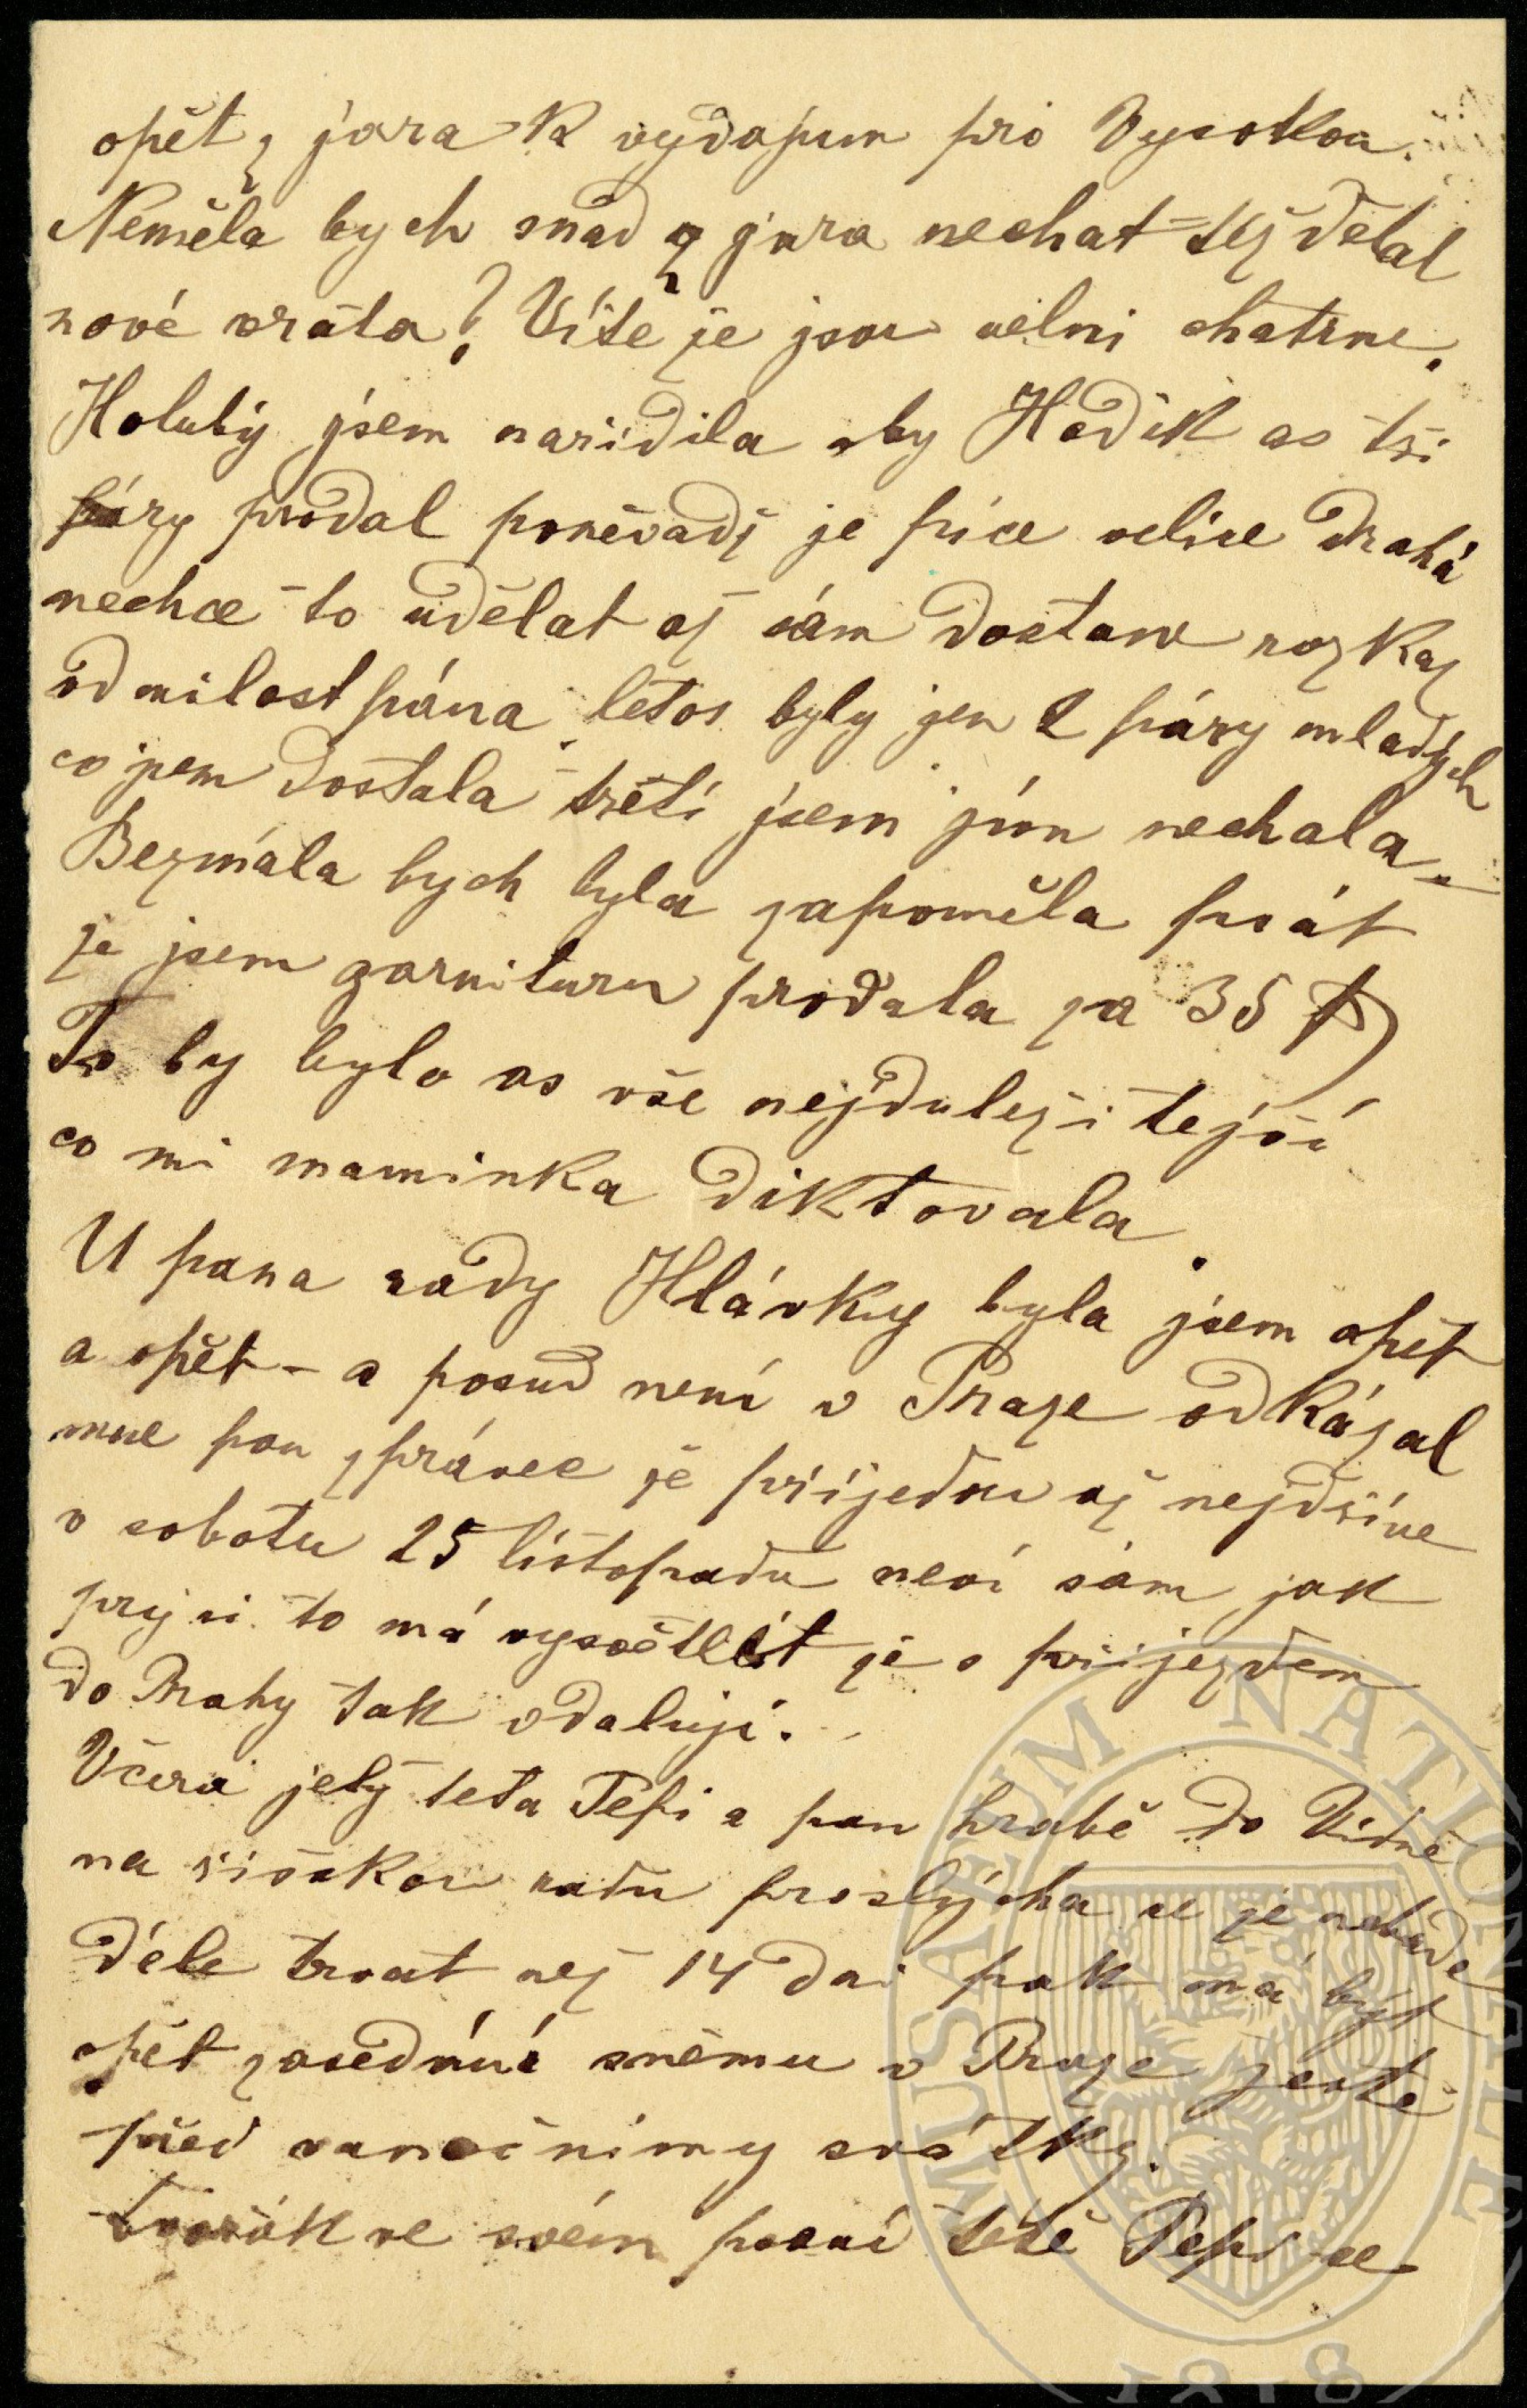 opět z jara k vydajum pro Vysokou.
Neměla bych snad z jara nechat též dělat
nové vráta? Víte že jsou velni chatrne.
Holubý jsem naridila aby Hodík as tři
páry prodal poněvadž je píce velice drahá
nechce to udělat až sám dostane rozkaz
od milostpána letos byly jen 2 páry mladých
co jsem dostala třetí jsem jim nechala
Bezmála bych byla zapoměla psát
že jsem garnituru prodala za 35 f
To by bylo as vše nejduležitejší
co mi maminka diktovala.
U pana rady Hlávky byla jsem opět
a opět - a posud není v Praze odkázal
mne pan zprávce že přijedou až nejdříve
v sobotu 25 listopadu neví sám jak
prý si to má vysvětlit že s přijezdem
do Prahy tak odalují.
Včera jelý teta Pepi a pan hrabě do Vídně
na říšskou radu proslýcha se že nebude
déle trvat než 14 dni pak má být
opět zasedání sněmu v Praze ještě
před vanočnímy svátky.
ve svém psaní tetě Pepi se
MUSAEUM NATIONALE
1818